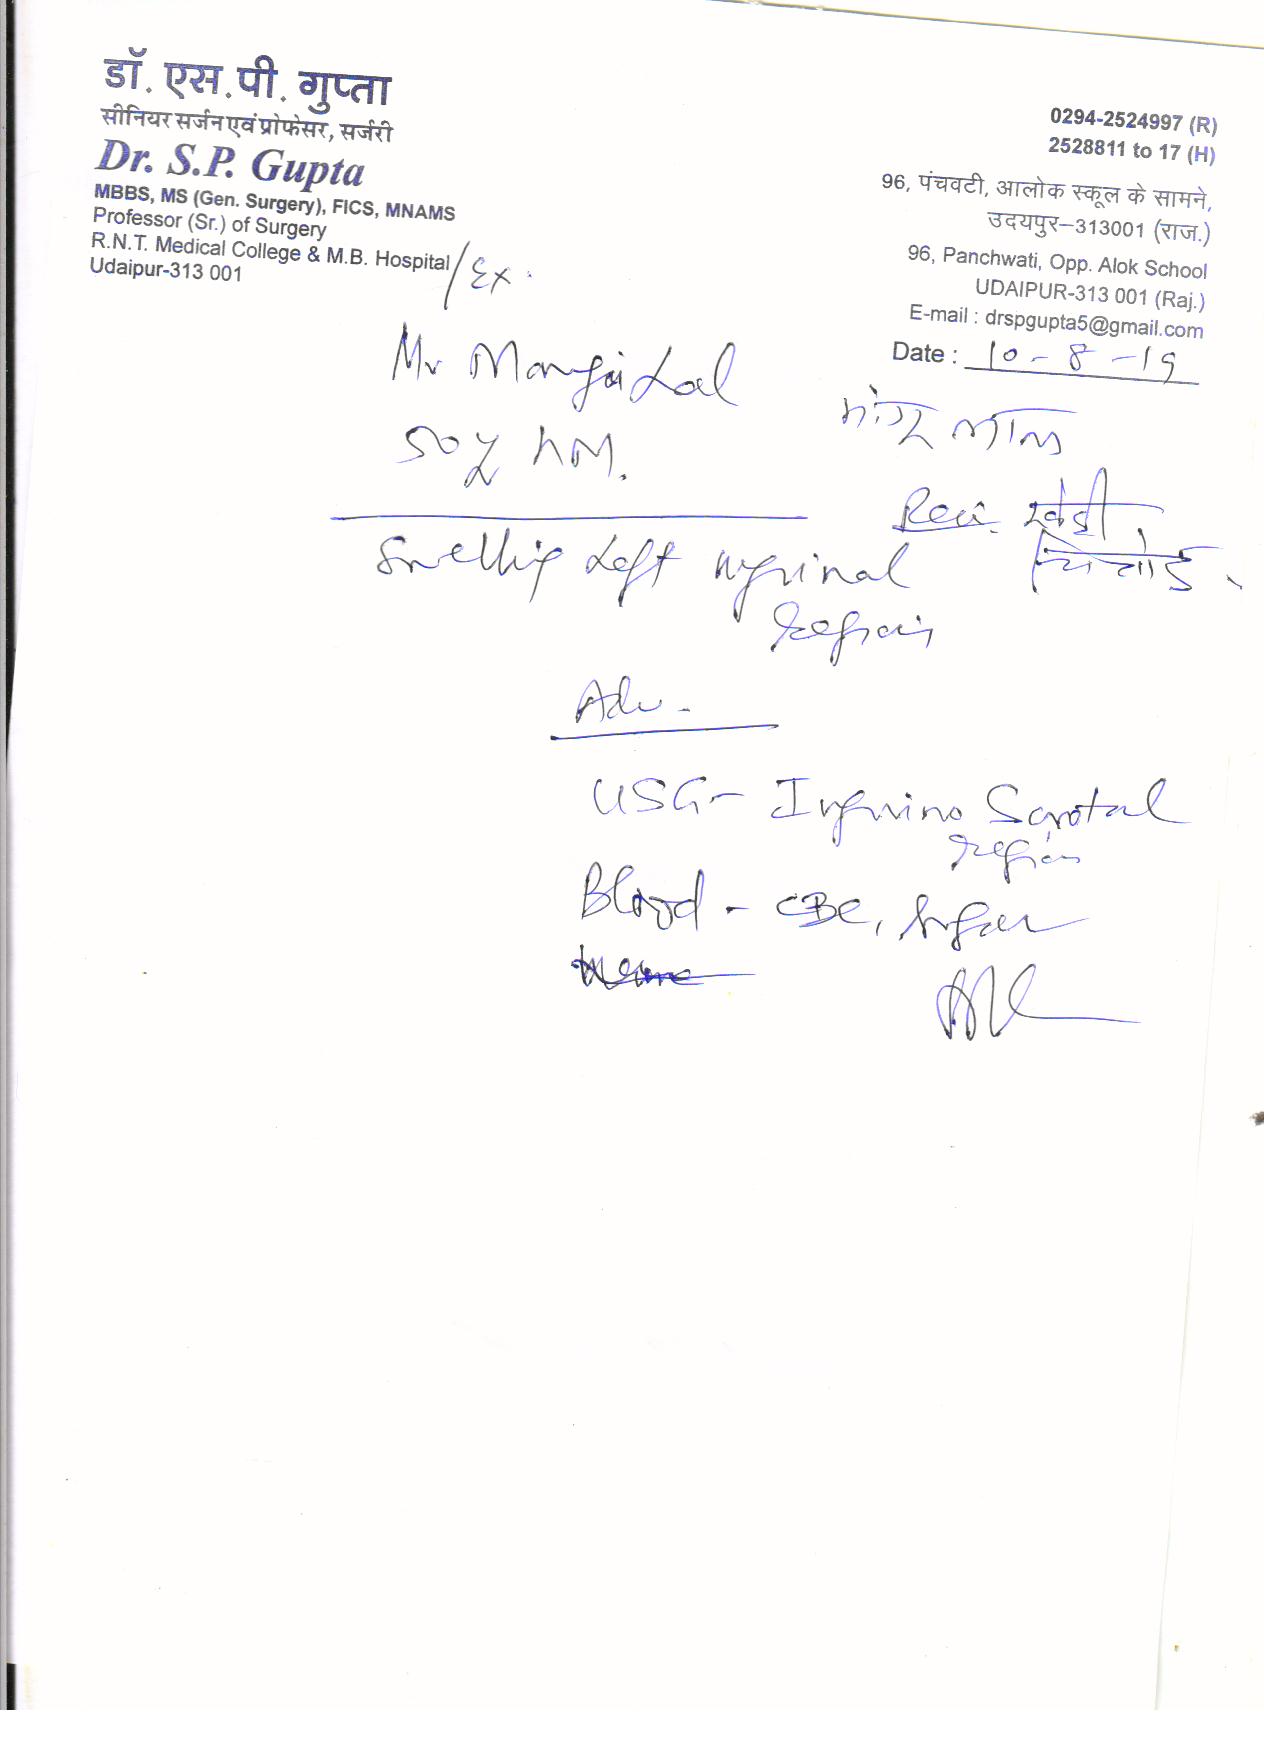 डॉ. एस.पी. गुप्ता
सीनियर सर्जन एवं प्रोफेसर, सर्जरी
Dr. S.P. Gupta
MBBS, MS (Gen. Surgery), FICS, MNAMS
Professor (Sr.) of Surgery
R.N.T. Medical College & M.B. Hospital /Ex.
Udaipur-313 001
0294-2524997 (R)
2528811 to 17 (H)
96, पंचवटी, आलोक स्कूल के सामने,
उदयपुर–313001 (राज.)
96, Panchwati, Opp. Alok School
UDAIPUR-313 001 (Raj.)
E-mail : drspgupta5@gmail.com
Date : 10-8-19
Mr Mangi Lal
मांगू लाल
50y
Swelling Left inguinal
region
Adv-
USG- Inguino Scrotal
region
Blood - CBC, Sugar